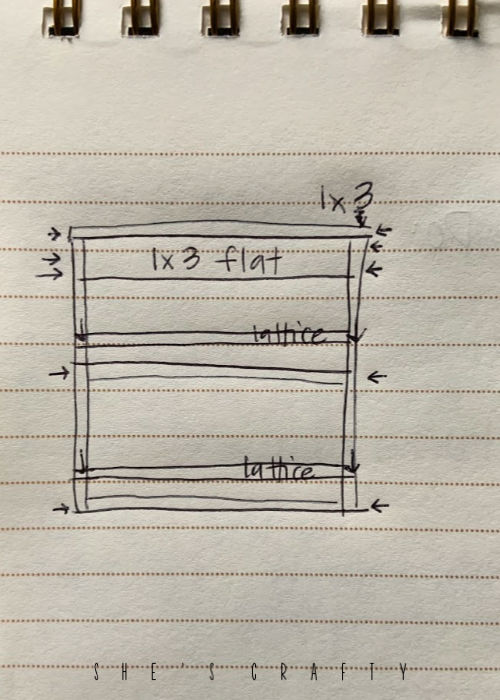 1x3
1x3 flat
lattice
lattice
SHE'S CRAFTY